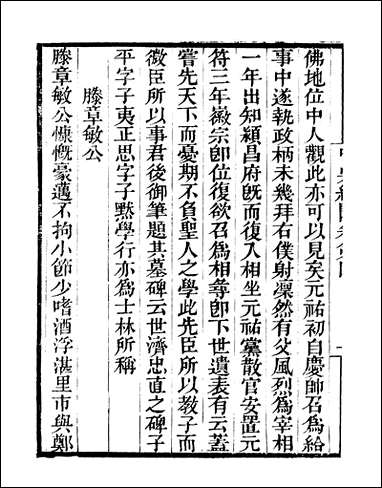 佛地位中人觀此亦可以見矣元祐初自慶帥召為給
事中遂執政柄未幾拜右僕射凜然有父風烈為宰相
一年出知潁昌府旣而復入相坐元祐黨散官安置元
符三年徽宗卽位復欲召為相尋卽下世遺表有云蓋
嘗先天下而憂期不負聖人之學此先臣所以教子而
微臣所以事君後御筆題其墓碑云世濟忠直之碑子
平字子夷正思字子默學行亦為士林所稱
滕章敏公
滕章敏公慷慨豪邁不拘小節少嗜酒浮湛里市與鄭